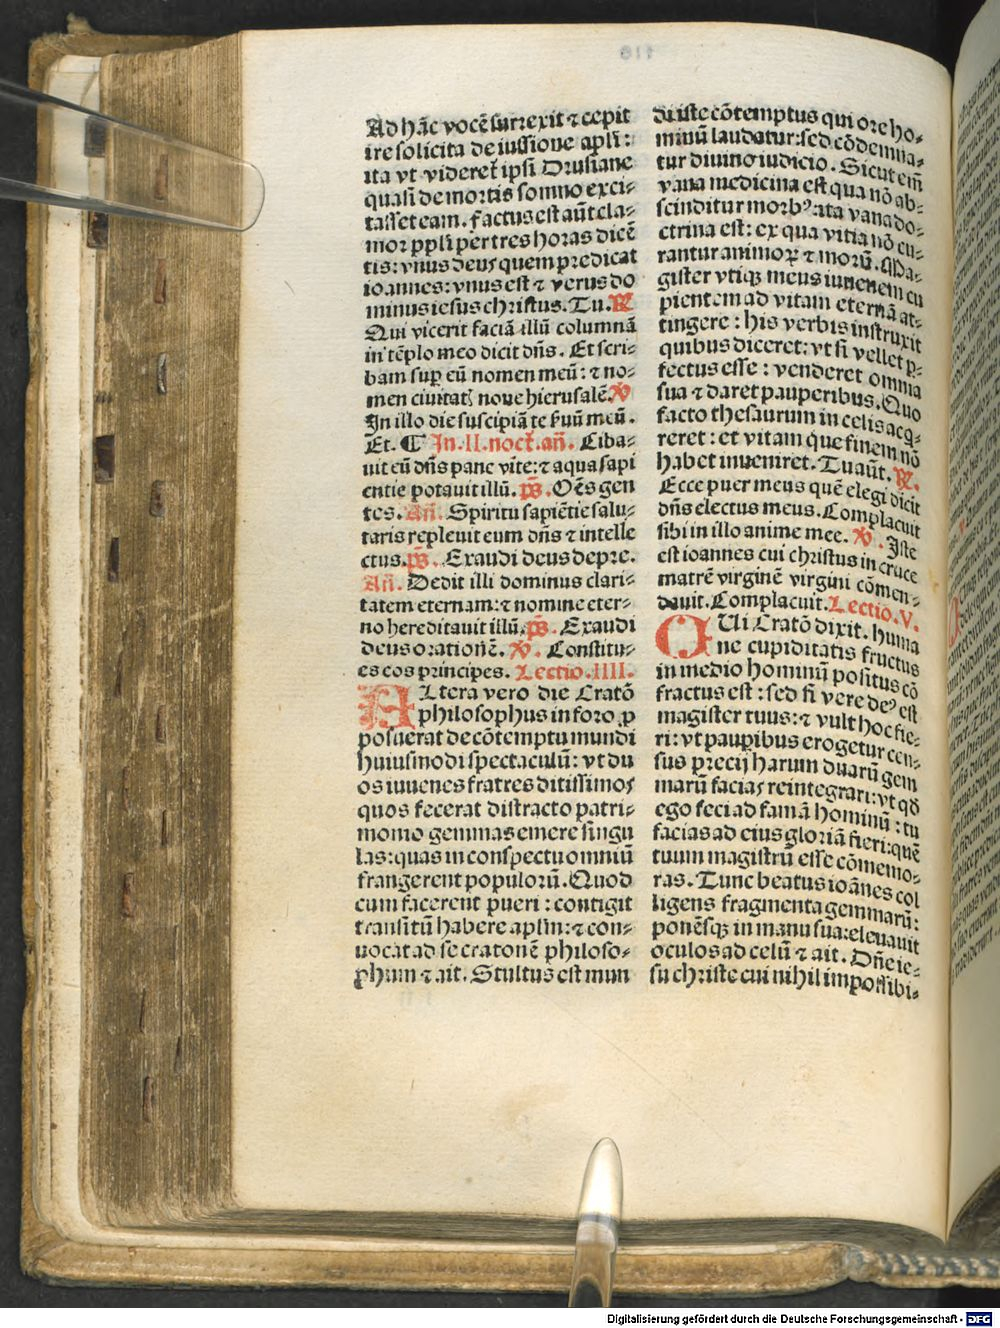 Ad hāc vocē surrexit ⁊ cepit
ire solicita de iussione apl̄i:
ita vt videret̄ ipsi Drusiane
quasi de mortis somno exci-
tasset eam. factus est aūt cla-
mor pp̄li per tres horas dicē
tis: vnus deus quem predicat
ioannes: vnus est ⁊ verus do
minus iesus christus. Tu. ℟
Qui vicerit faciā illū columnā
in tēplo meo dicit dn̄s. Et scri-
bam sup̄ eū nomen meū: ⁊ no-
men ciuitatꝭ noue hierusalē. ℣
In illo die suscipiā te ẜuū meū.
Et. ¶ In. II. noct̄. an̄. Ciba-
uit eū dn̄s pane vite: ⁊ aqua sapi
entie potauit illū. ps̄. Oēs gen
tes. An̄. Spiritu sapiētie salu-
taris repleuit eum dn̄s ⁊ intelle
ctus. ps̄. Exaudi deus depre.
An̄. Dedit illi dominus clari-
tatem eternam: ⁊ nomine eter-
no hereditauit illū. ps̄. Exaudi
deus orationē. ℣. Constitu-
es eos principes. Lectio. IIII.
ALtera vero die Cratō
philosophus in foro ꝓ
posuerat de cōtemptu mundi
huiusmodi spectaculū: vt du
os iuuenes fratres ditissimos
quos fecerat distracto patri-
monio gemmas emere singu
las: quas in conspectu omniū
frangerent populorū. Quod
cum facerent pueri: contigit
transitū habere apl̄m: ⁊ con-
uocat ad se cratonē philoso-
phum ⁊ ait. Stultus est mun
di iste cōtemptus qui ore ho-
minū laudatur: sed cōdemna-
tur diuino iudicio. Sicut em̄
vana medicina est qua nō ab-
scinditur morbꝰ: ita vana do-
ctrina est: ex qua vitia nō cu-
rantur animoꝝ ⁊ morū. Ma-
gister vtiqꝫ meus iuuenem cu
pientem ad vitam eternā at-
tingere: his verbis instruxit
quibus diceret: vt si vellet ꝑ-
fectus esse: venderet omnia
sua ⁊ daret pauperibus. Quo
facto thesaurum in celis acq̄-
reret: et vitam que finem nō
habet inueniret. Tu aūt. ℟.
Ecce puer meus quē elegi dicit
dn̄s electus meus. Complacuit
sibi in illo anime mee. ℣. Iste
est ioannes cui christus in cruce
matrē virginē virgini cōmen-
dauit. Complacuit. Lectio. V.
CUi Cratō dixit. huma
ne cupiditatis fructus
in medio hominū positus cō
fractus est: sed si vere deꝰ est
magister tuus: ⁊ vult hoc fie-
ri: vt paupibus erogetur cen-
sus precij harum duarū gem
marū facias reintegrari: vt qd̄
ego feci ad famā hominū: tu
facias ad eius gloriā fieri: quē
tuum magistrū esse cōmemo-
ras. Tunc beatus ioānes col
ligens fragmenta gemmarū:
ponēsqꝫ in manu sua: eleuauit
oculos ad celū ⁊ ait. Dn̄e ie-
su christe cui nihil impossibi-
Digitalisierung gefördert durch die Deutsche Forschungsgemeinschaft - DFG